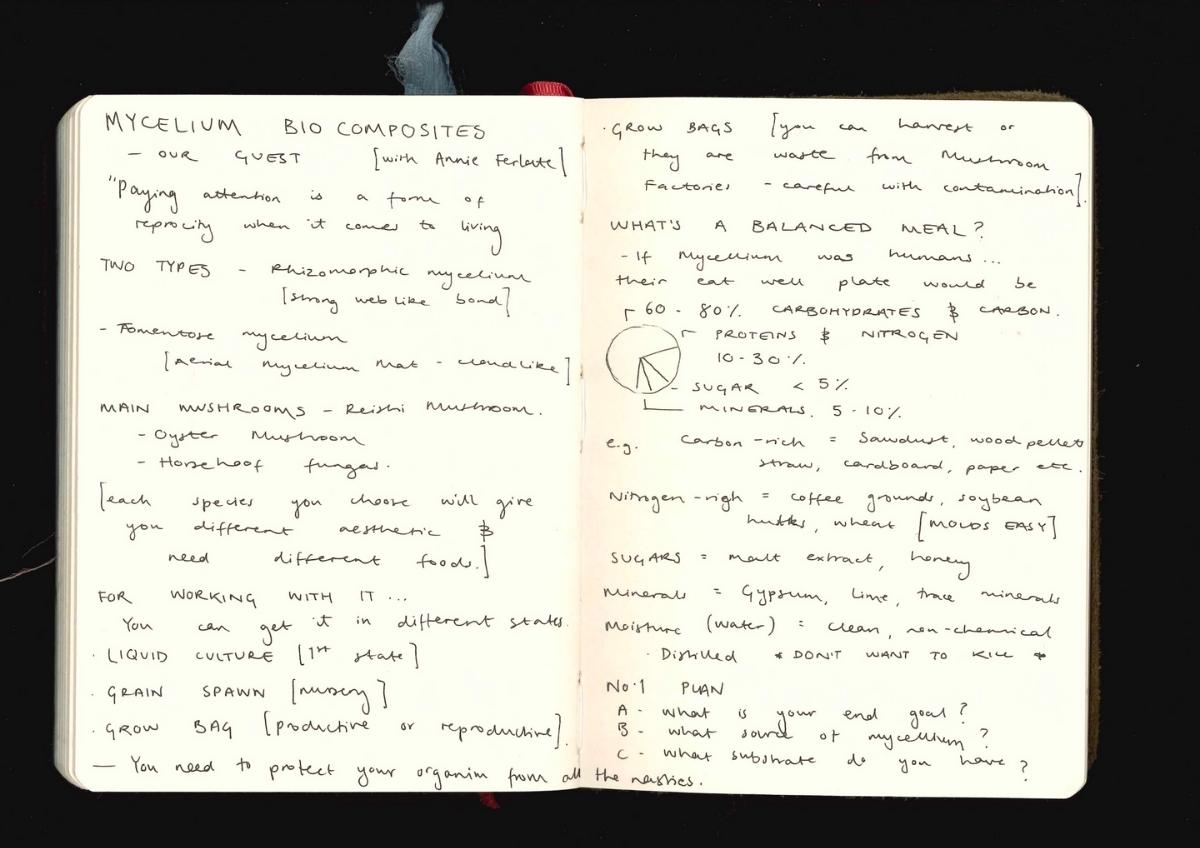 MYCELIUM BIO COMPOSITES
- OUR GUEST [with Annie Ferlatte]
"Paying attention is a form of
reprocity when it comes to living
TWO TYPES - Rhizomorphic mycelium
[strong web like bond]
- Tomentose mycelium
[Aerial Mycelium Mat - cloudlike]
MAIN MUSHROOMS - Reishi Mushroom.
- Oyster Mushroom
- Horsehoof fungas.
[each species you choose will give
you different aesthetic &
need different foods.]
FOR WORKING WITH IT ...
You can get it in different states.
· LIQUID CULTURE [1st state]
· GRAIN SPAWN [nursery]
· GROW BAG [productive or reproductive].
— You need to protect your organim from all the nasties.
· GROW BAGS [you can harvest or
they are waste from Mushroom
Factories - careful with contamination].
WHAT'S A BALANCED MEAL?
- If Mycellium was humans...
their eat well plate would be
60 - 80% CARBOHYDRATES & CARBON.
PROTEINS & NITROGEN
10-30%
- SUGAR < 5%
MINERALS. 5-10%
e.g. Carbon-rich = Sawdust, wood pellets
straw, cardboard, paper etc.
Nitrogen-righ = coffee grounds, soybean
husks, wheat [MOLDS EASY]
SUGARS = malt extract, honey
Minerals = Gypsum, lime, trace minerals
Moisture (water) = clean, non-chemical
· Distilled * DON'T WANT TO KILL *
No.1 PLAN
A - what is your end goal?
B - what source of mycellium?
C - what substrate do you have?